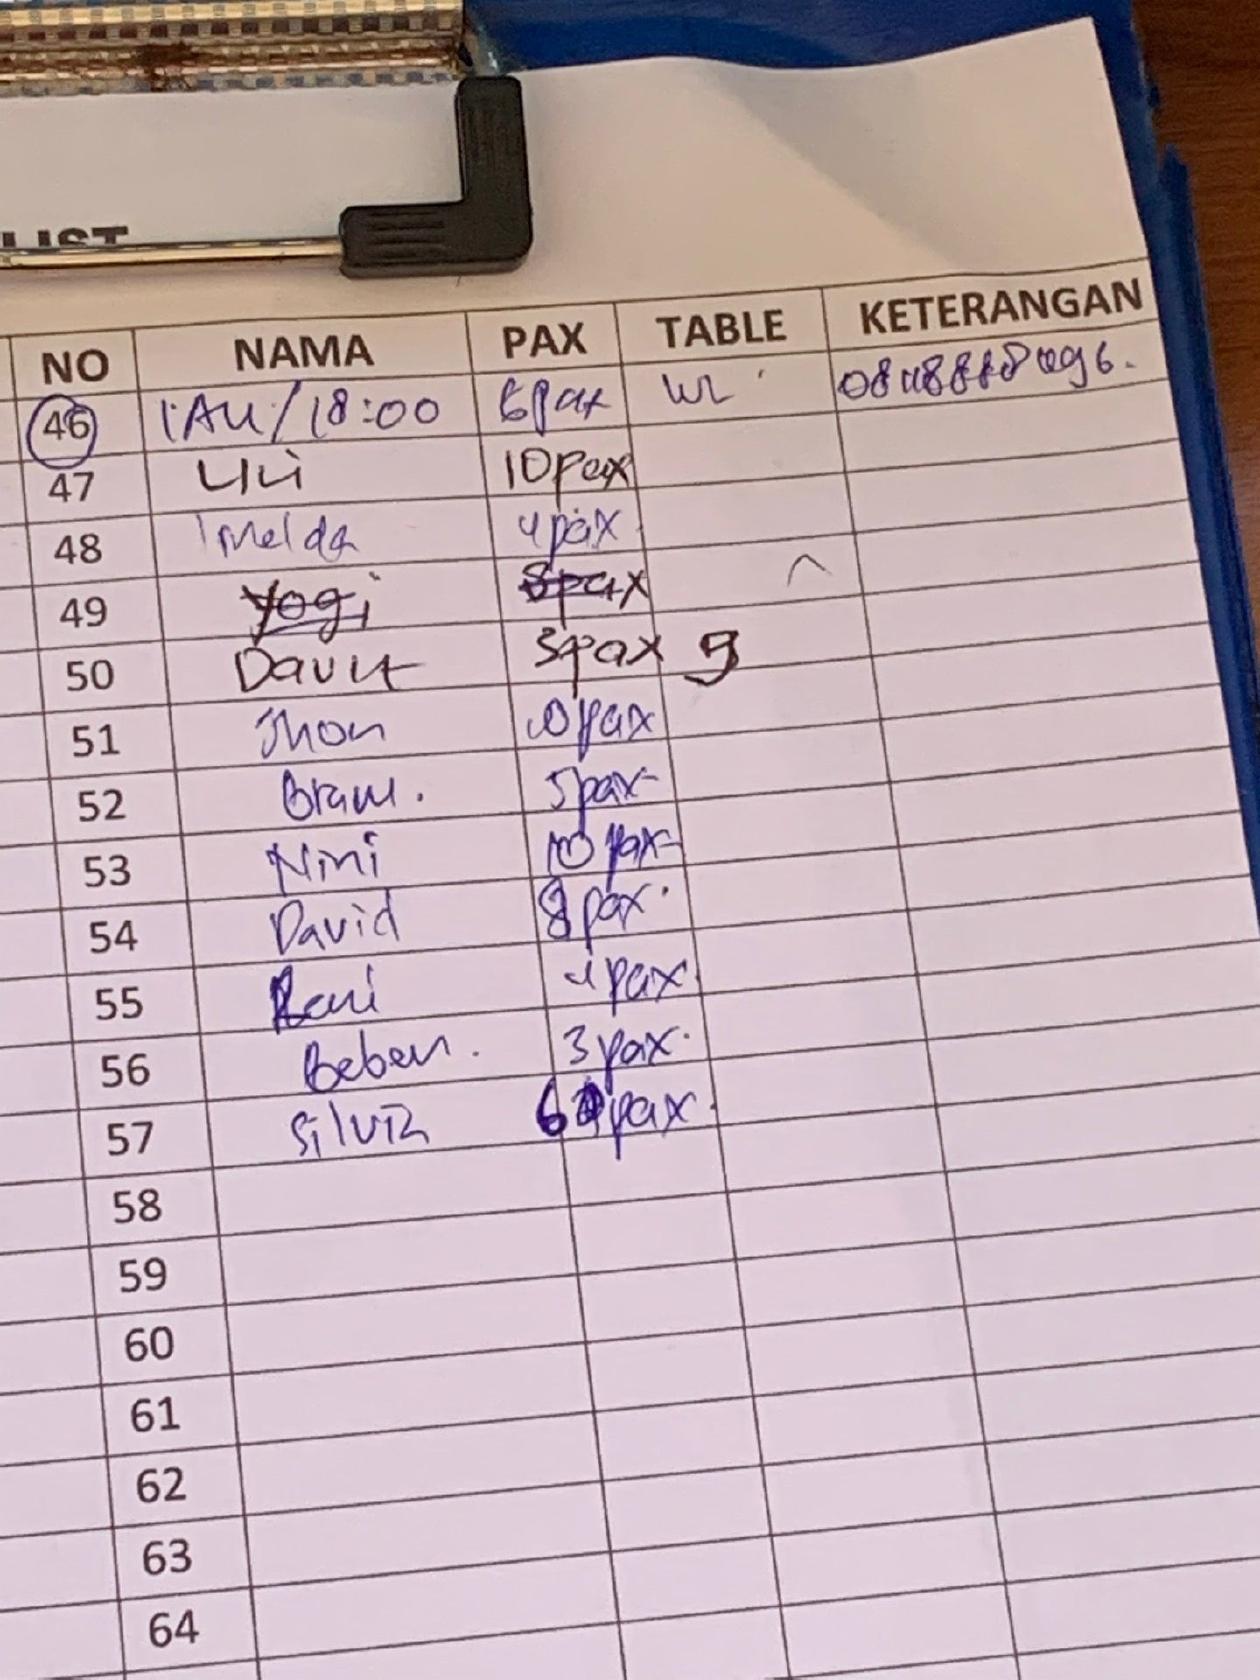 LIST
NO NAMA PAX TABLE KETERANGAN
46 18:00 6pax WL
47 10pax
48 Imelda 4pax
49 Yogi 8pax
50 David 3pax 9
51 Jhon 10pax
52 Bram. 5pax
53 Nini 10 pax
54 David 8 pax.
55 Rani 4 pax.
56 Beben. 3 pax.
57 Silvia 6 pax.
58
59
60
61
62
63
64